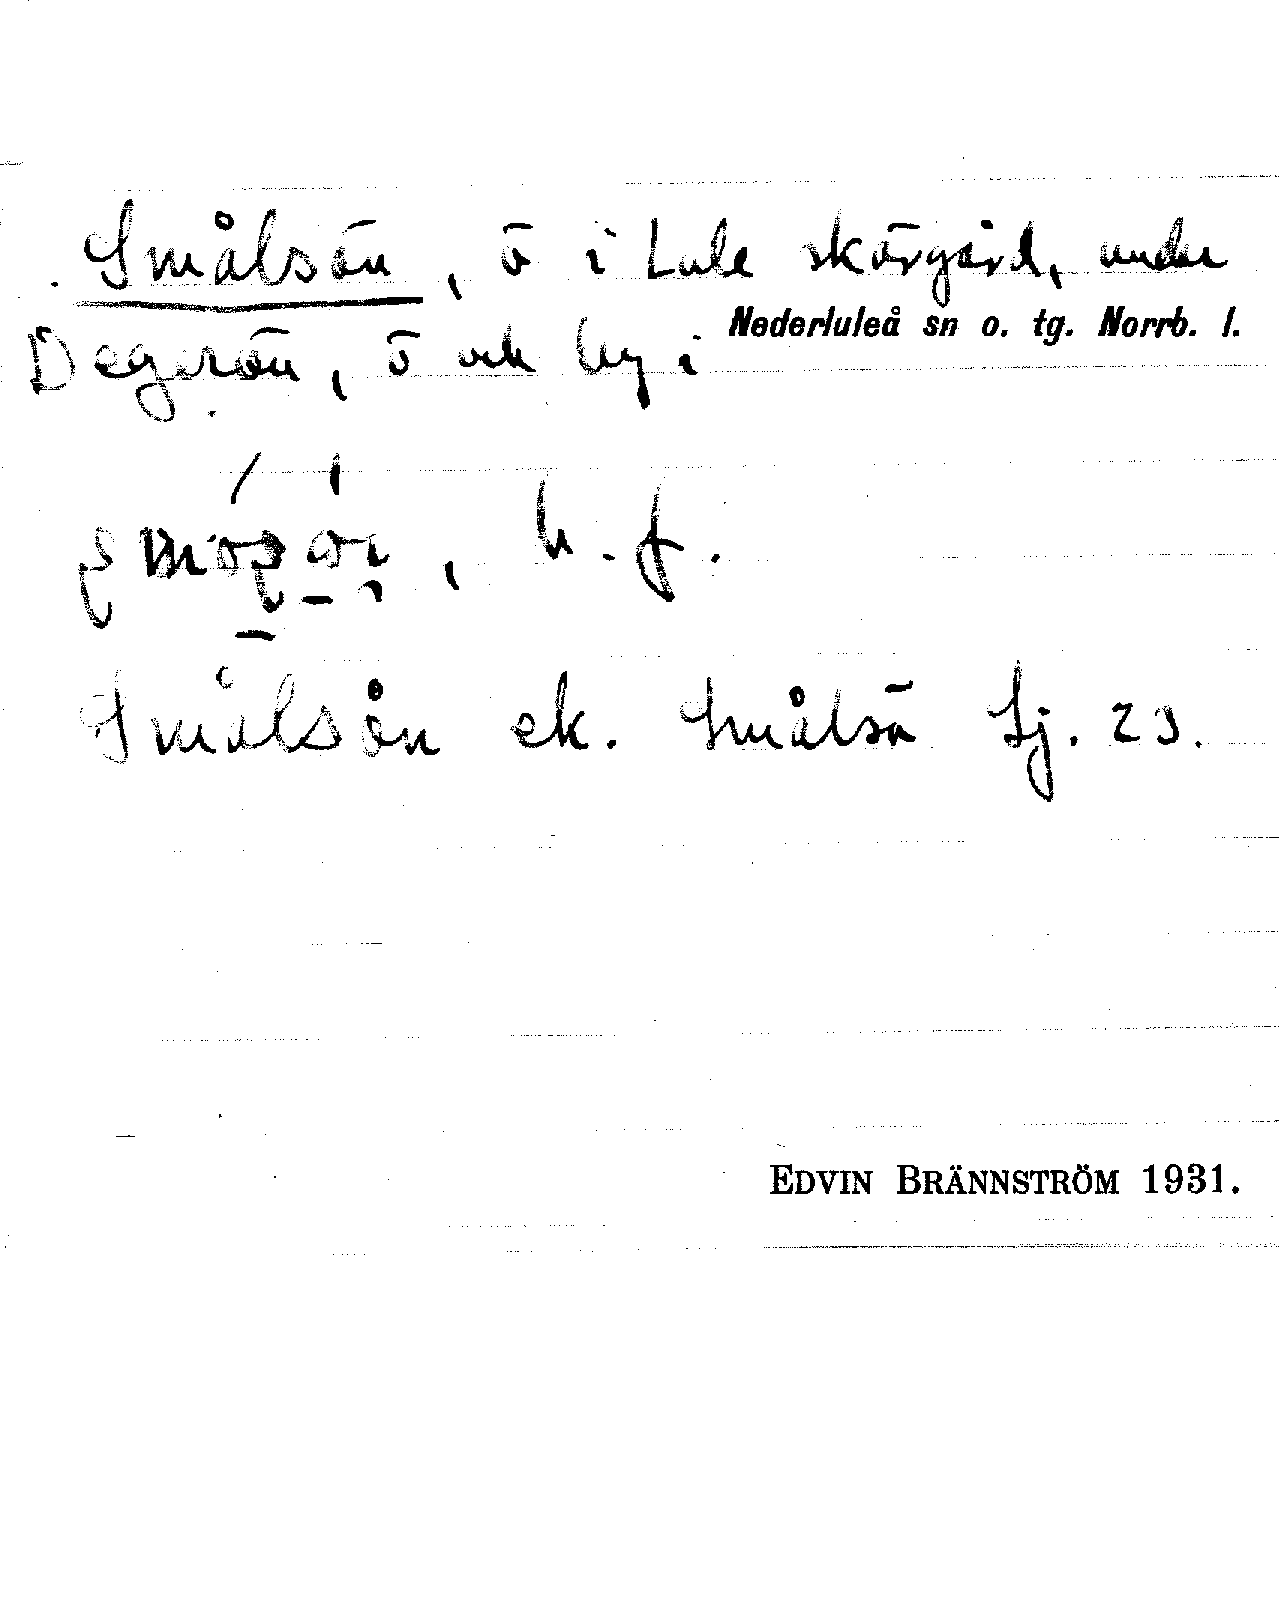 Smålsön, ö i Lule skärgård, under
Degerön, ö och by i Nederluleå sn o. tg. Norrb. l.
, b. f.
Smålsön ek. Smålsö Sj. 23.
EDVIN BRÄNNSTRÖM 1931.